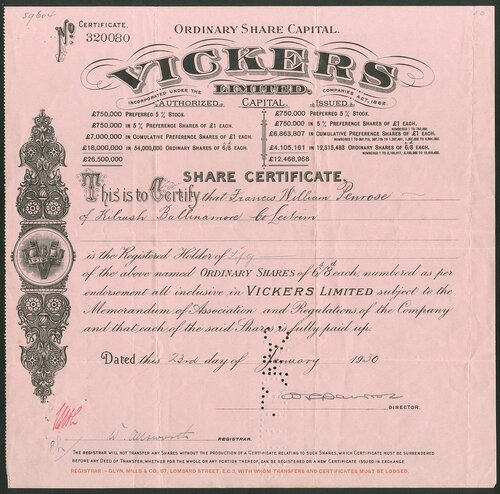 59604
50
Nº CERTIFICATE.
320080
ORDINARY SHARE CAPITAL.
VICKERS
LIMITED.
INCORPORATED UNDER THE COMPANIES ACT, 1862.
AUTHORIZED. CAPITAL. ISSUED.
£750,000 PREFERRED 5 % STOCK. £750,000 PREFERRED 5 % STOCK.
£750,000 IN 5 % PREFERENCE SHARES OF £1 EACH. £750,000 IN 5 % PREFERENCE SHARES OF £1 EACH.
£7,000,000 IN CUMULATIVE PREFERENCE SHARES OF £1 EACH. £6,863,807 IN CUMULATIVE PREFERENCE SHARES OF £1 EACH.
£18,000,000 IN 54,000,000 ORDINARY SHARES OF 6/8 EACH. £4,105,161 IN 12,315,483 ORDINARY SHARES OF 6/8 EACH.
£26,500,000 £12,468,968
SHARE CERTIFICATE.
This is to Certify that Francis William Penrose
of Kilrush Ballinamore Co Leitrim
is the Registered Holder of
of the above named ORDINARY SHARES of 6/8 each, numbered as per
endorsement all inclusive in VICKERS LIMITED subject to the
Memorandum of Association and Regulations of the Company
and that each of the said Shares is fully paid up.
Dated this 23rd day of January 1930
DIRECTOR.
REGISTRAR.
THE REGISTRAR WILL NOT TRANSFER ANY SHARES WITHOUT THE PRODUCTION OF A CERTIFICATE RELATING TO SUCH SHARES, WHICH CERTIFICATE MUST BE SURRENDERED
BEFORE ANY DEED OF TRANSFER, WHETHER FOR THE WHOLE OR ANY PORTION THEREOF, CAN BE REGISTERED OR A NEW CERTIFICATE ISSUED IN EXCHANGE.
REGISTRAR—GLYN, MILLS & CO., 67, LOMBARD STREET, E.C.3, WITH WHOM TRANSFERS AND CERTIFICATES MUST BE LODGED.